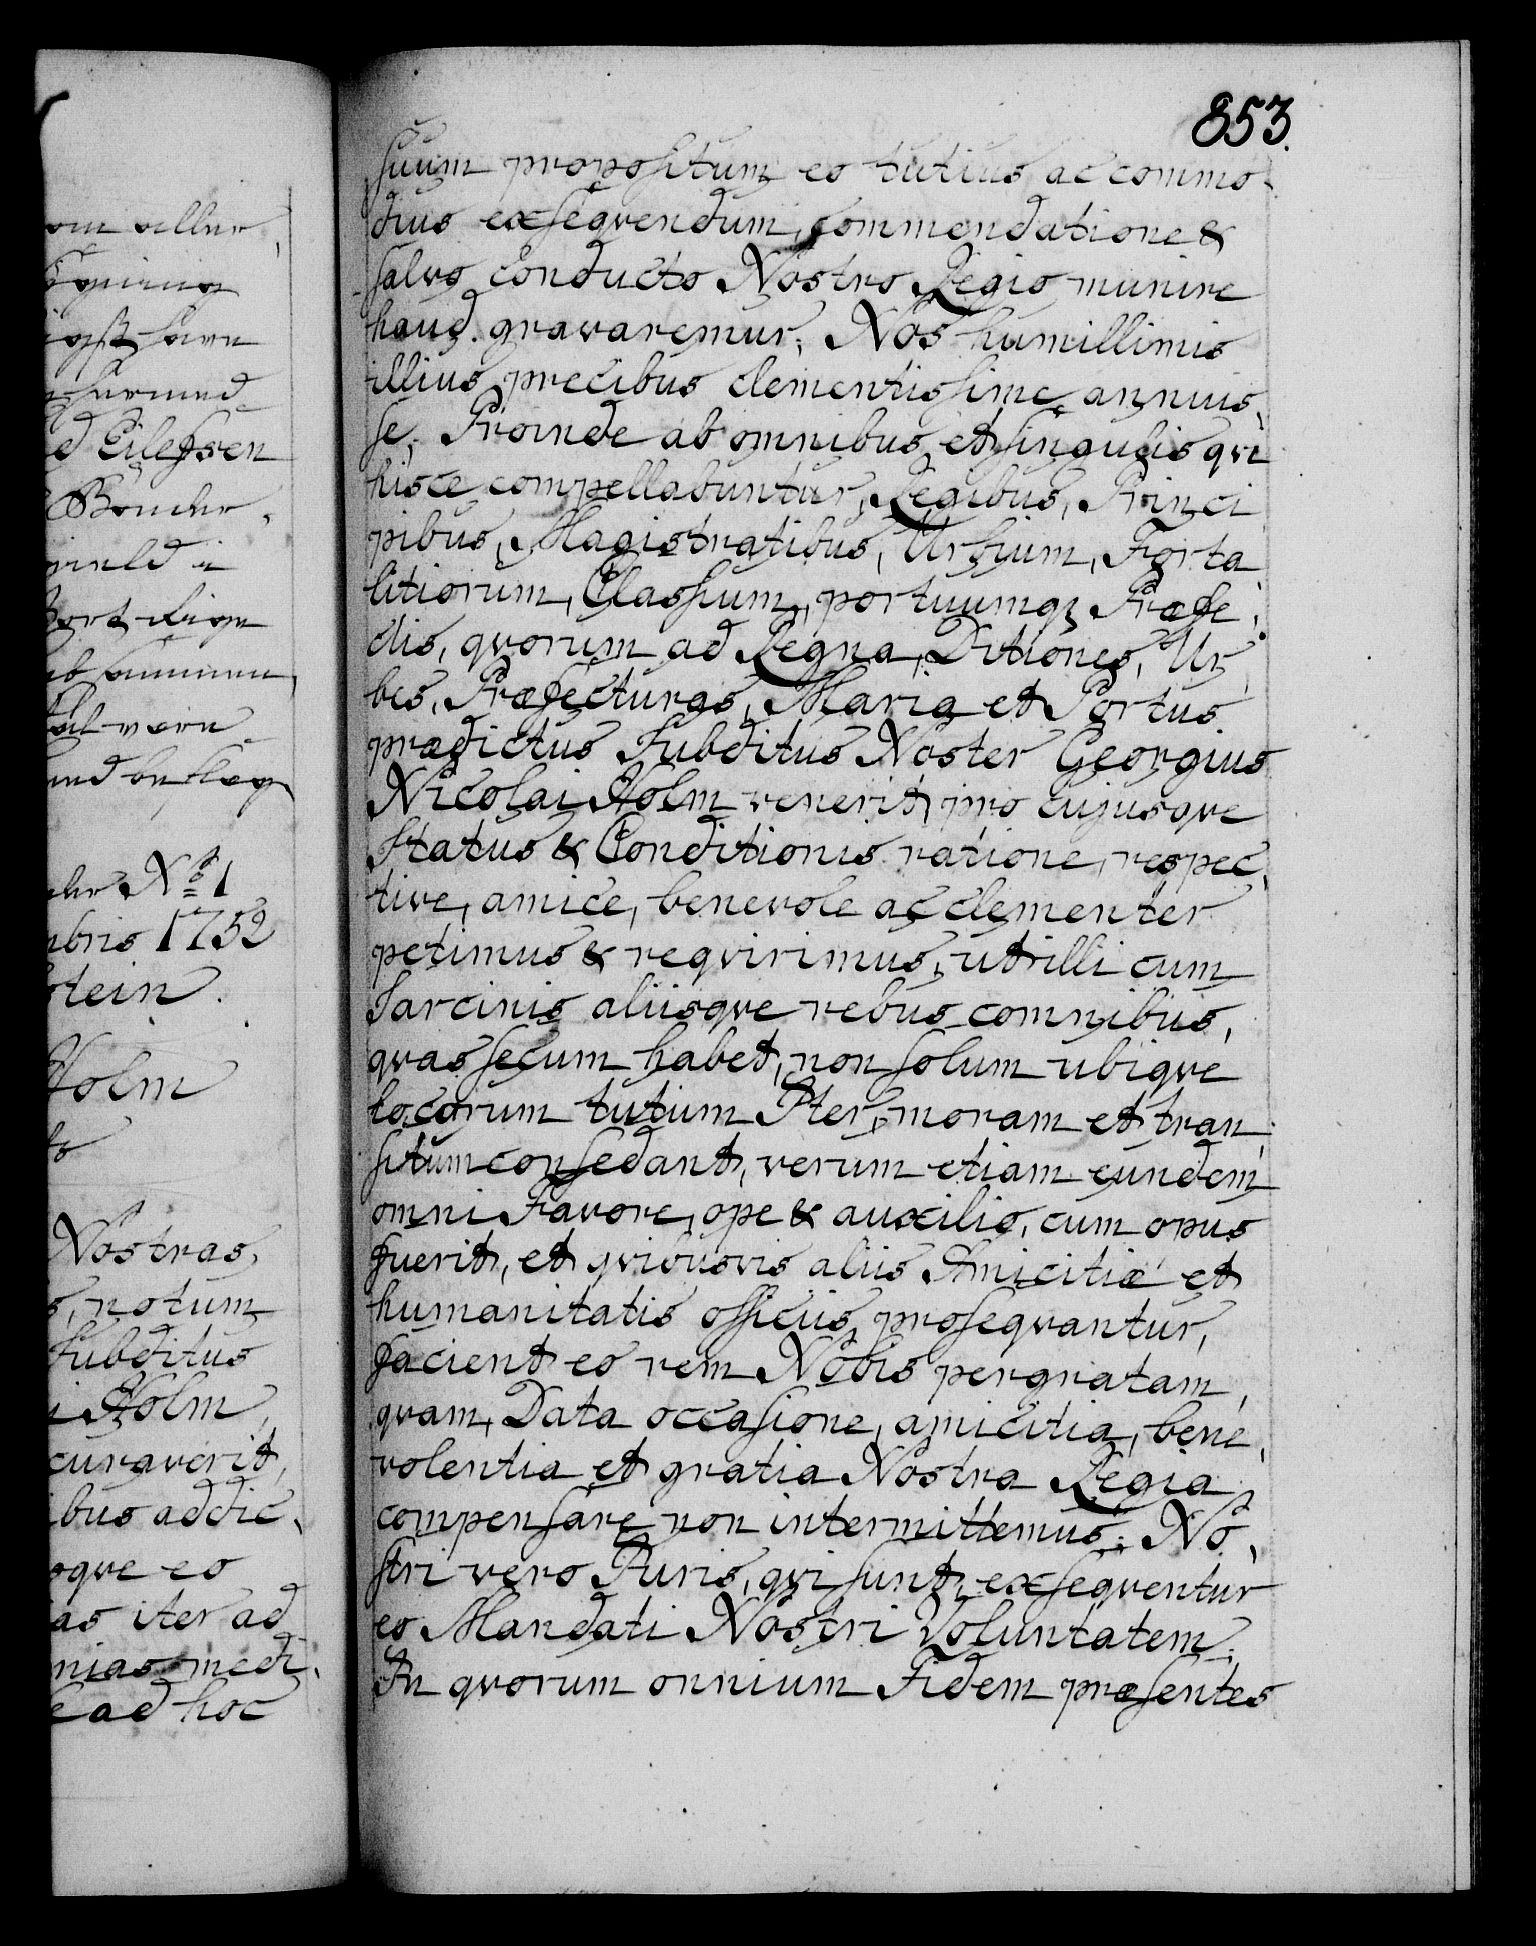 853.
suum propositum eo tutius ac commo-
dius exseqvendum, commendatione &
salvo Conducto Nostro Regio munire
haud gravaremur; Nos humillimis
illius precibus clementissime annuis-
se. Proinde ab omnibus et singulis qvi
hisce compellabuntur, Regibus, Princi
pibus, Magistratibus, Urbium, Forta
litiorum, Classium, portuumq; Præfe-
ctis, qvorum ad Regna, Ditiones, Ur
bes, Præfecturas, Maria et Portus
prædictus Subditus Noster Georgius
Nicolai Holm venerit, pro cujusqve
Status & Conditionis ratione, respec-
tive, amice, benevole ac clementer
petimus & reqvirimus, ut illi cum
Sarcinis aliisqve rebus omnibus,
qvas secum habet, non solum ubiqve
locorum tutum Iter, moram et tran
situm consedant, verum etiam eundem
omni Favore, ope & auxilio, cum opus
fuerit, et qvibusvis aliis Amicitiæ et
humanitatis officiis proseqvantur,
facient eo rem Nobis pergratam,
qvam, Data occasione, amicitia, bene-
volentia et gratia Nostra Regia
compensare non intermittemus. No-
stri vero Juris, qvi sunt, exseqventur
eo Mandati Nostri Voluntatem.
In qvorum omnium Fidem præsentes
d Eilessen
No 1
bris 1752
stein.
Holm
Nostras,
s, notum
Subditus
i Holm,
curaverit,
ibus addic-
oqve eo
as iter ad
nias medi-
e ad hoc